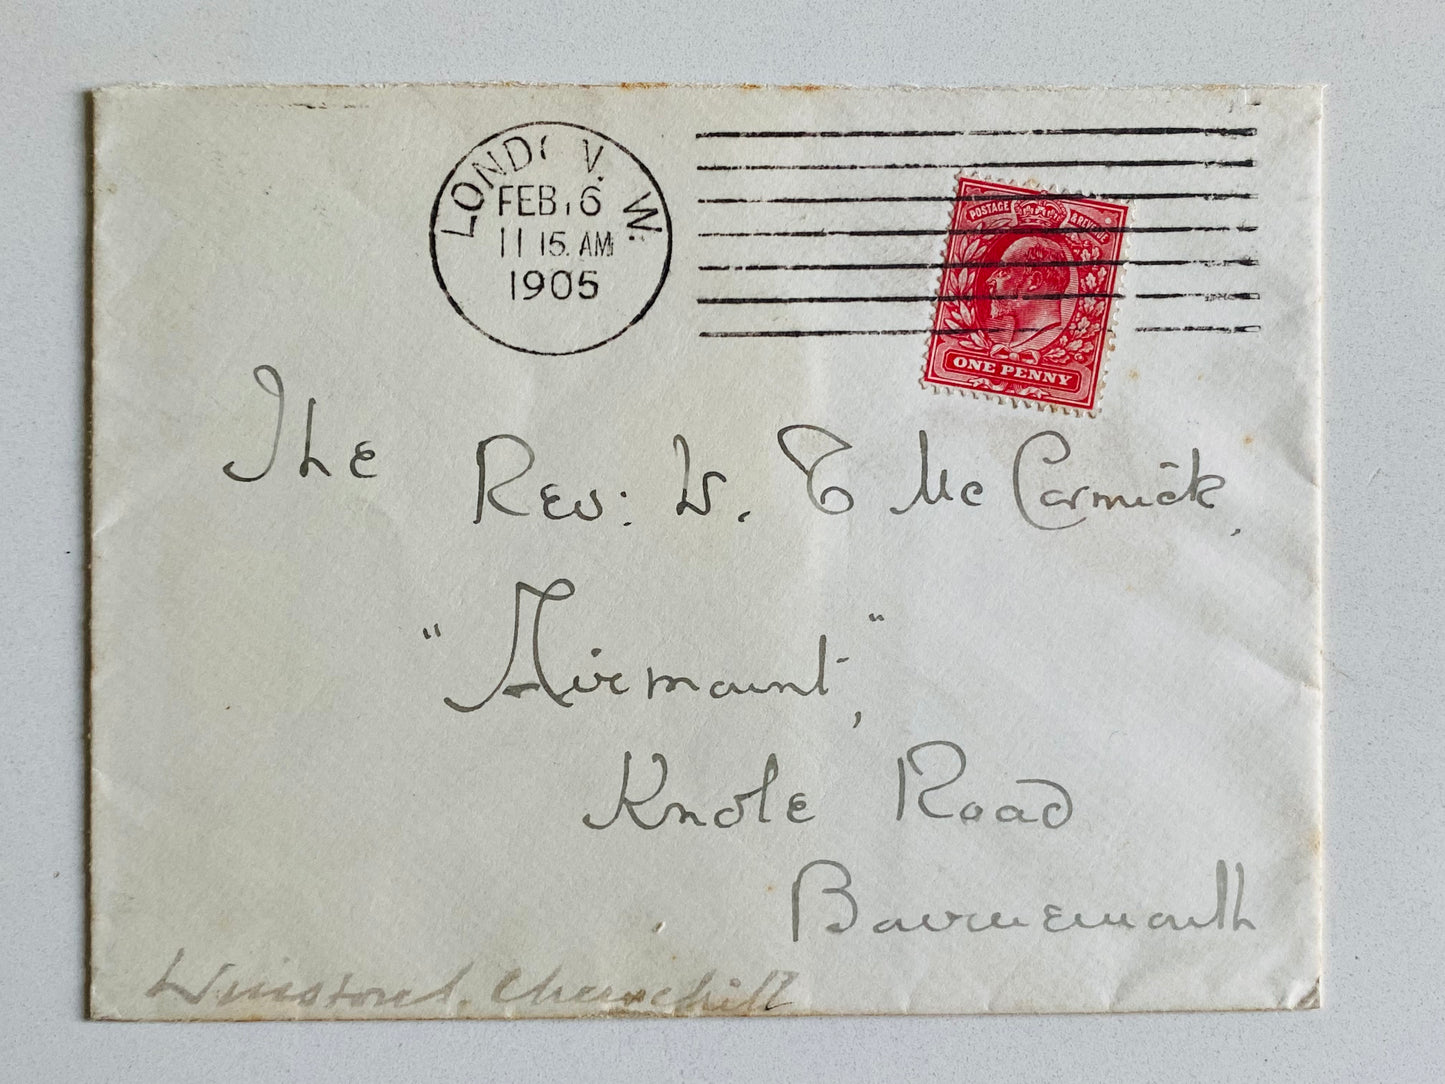 LONDON. W.
FEB 16
11 15. AM
1905
POSTAGE & REVENUE
ONE PENNY
The Rev: W. T McCormick,
"Airmount",
Knole Road
Bournemouth
Winston S. Churchill